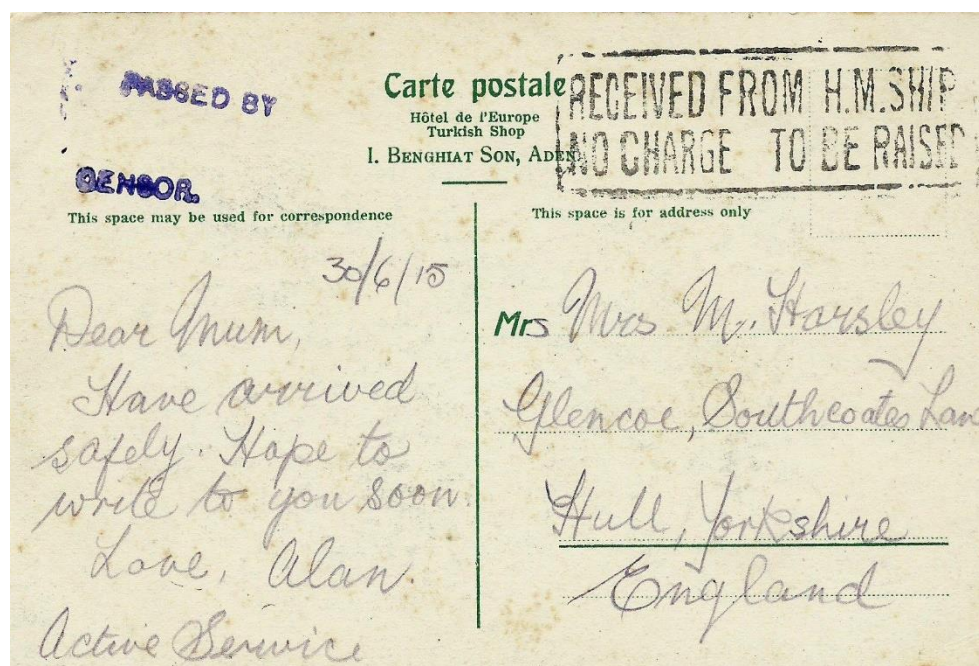 PASSED BY
CENSOR.
Carte postale
Hôtel de l'Europe
Turkish Shop
I. BENGHIAT SON, ADEN
RECEIVED FROM H.M.SHIP
NO CHARGE TO BE RAISED
This space may be used for correspondence
30/6/15
Dear Mum,
Have arrived
safely. Hope to
write to you soon.
Love, Alan
Active Service
This space is for address only
Mrs Mrs M. Harsley
Glencoe, Southcoates Lan
Hull, Yorkshire
England